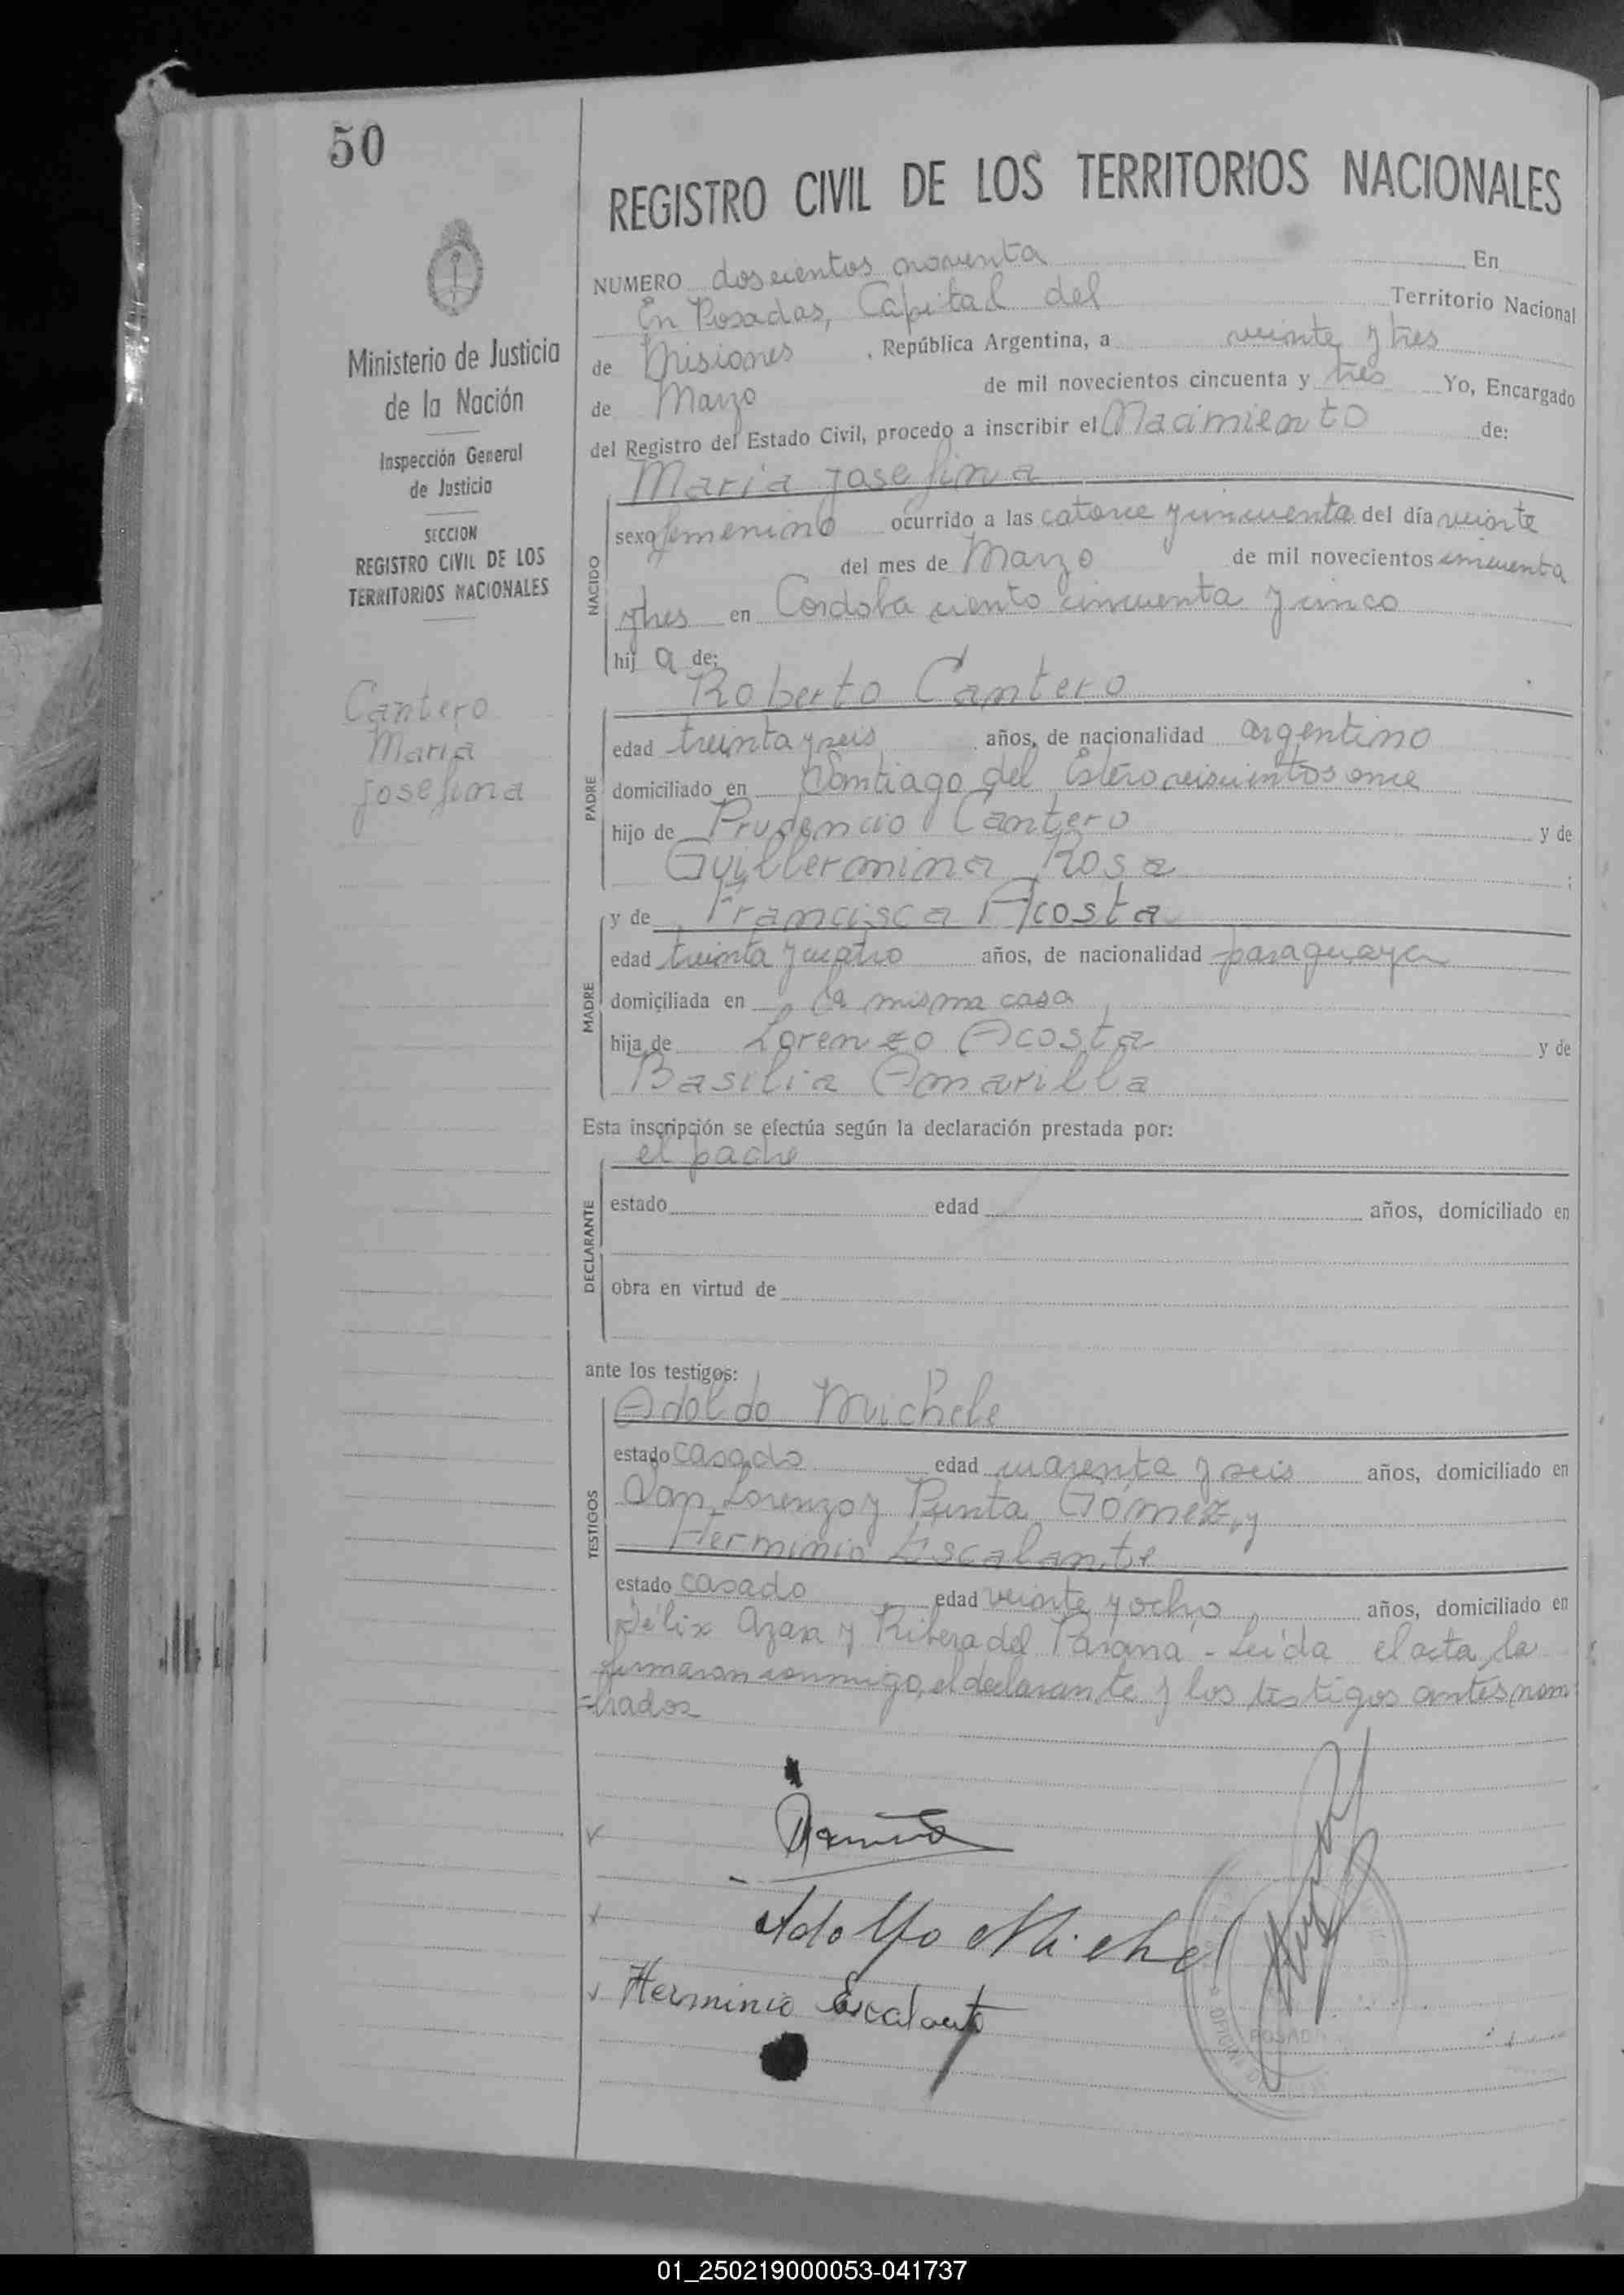 50
Ministerio de Justicia
de la Nación
Inspección General
de Justicia
SECCION
REGISTRO CIVIL DE LOS
TERRITORIOS NACIONALES
Cantero
Maria
Josefina
REGISTRO CIVIL DE LOS TERRITORIOS NACIONALES
NUMERO doscientos noventa En
En Posadas, Capital del Territorio Nacional
de Misiones , República Argentina, a veinte y tres
de Marzo de mil novecientos cincuenta y tres Yo, Encargado
del Registro del Estado Civil, procedo a inscribir el Nacimiento de:
Maria Josefina
NACIDO
sexo femenino ocurrido a las catorce y cincuenta del día veinte
del mes de Marzo de mil novecientos cincuenta
y tres en Cordoba ciento cincuenta y cinco
hij a de:
Roberto Cantero
PADRE
edad treinta y seis años, de nacionalidad argentino
domiciliado en Santiago del Estero seiscientos once
hijo de Prudencio Cantero y de
Guillermina Rosa ;
MADRE
y de Francisca Acosta
edad treinta y cuatro años, de nacionalidad paraguaya
domiciliada en la misma casa
hija de Lorenzo Acosta y de
Basilia Amarilla
Esta inscripción se efectúa según la declaración prestada por:
el padre
DECLARANTE
estado edad años, domiciliado en
obra en virtud de
ante los testigos:
TESTIGOS
Adolfo Michele
estado casado edad cuarenta y seis años, domiciliado en
San Lorenzo y Punta Gómez, y
Herminio Escalante
estado casado edad veinte y ocho, años, domiciliado en
Félix Azara y Ribera del Paraná - Leida el acta, la
firmaron conmigo, el declarante y los testigos antes nom
=brados
Adolfo Michel
Herminio Escalante
OFICINA
POSADAS
01_250219000053-041737